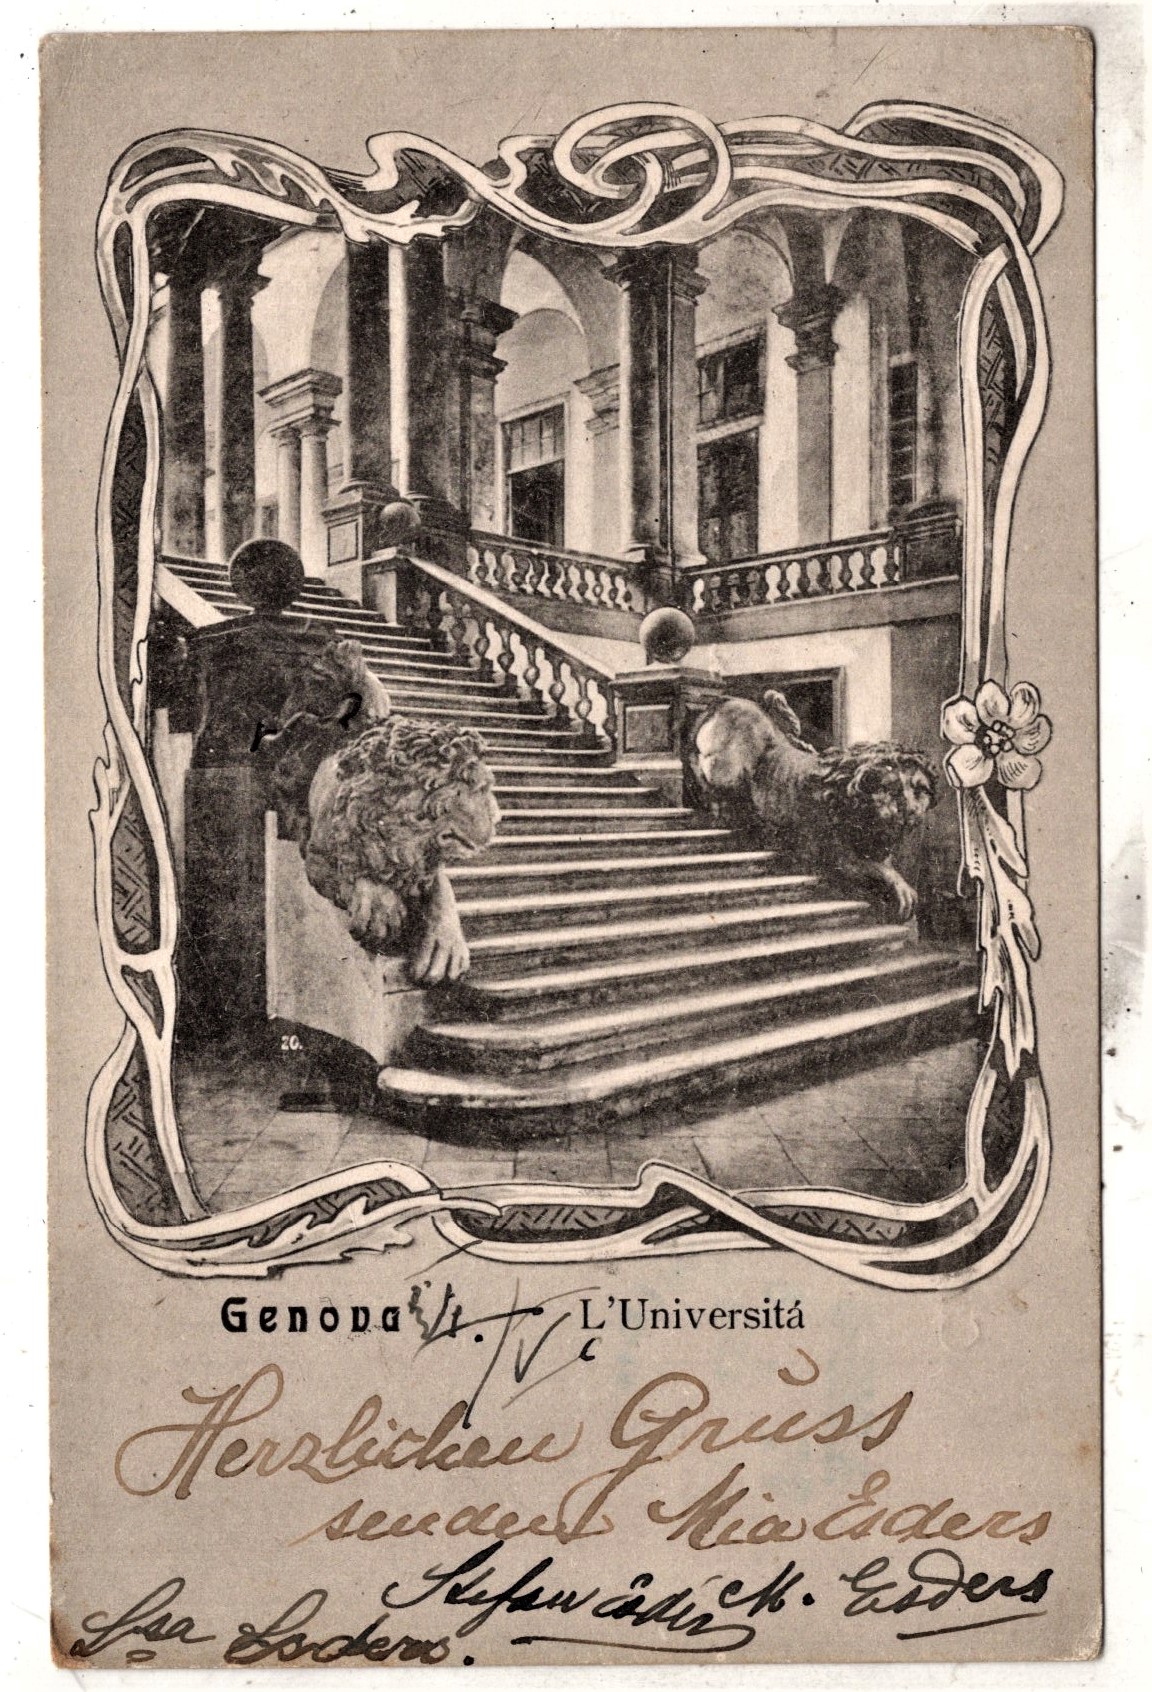 20.
Genova L'Universitá
Herzlichen Gruss
senden Mia Esders
Stefan M. Esders
Isa Esders.